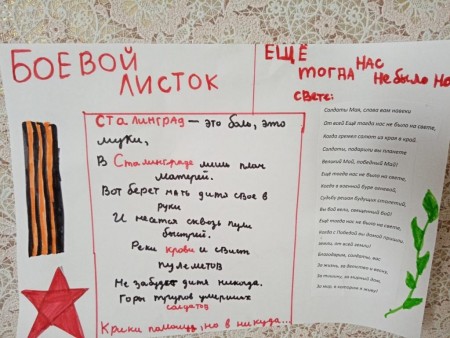 БОЕВОЙ
ЛИСТОК
ЕЩЁ
ТОГДА НАС
НЕ БЫЛО НА
СВЕТЕ:
СТАЛИНГРАД — это боль, это
муки,
В Сталинграде лишь плач
матерей.
Вот берет мать дитя свое в
руки
И несется сквозь пули
быстрей.
Реки крови и свист
пулеметов
Не забудет дитя никогда.
Горы трупов умерших
солдатов
Крики помощи, но в никуда...
Солдаты Мая, слава вам навеки
От всей Ещё тогда нас не было на свете,
Когда гремел салют из края в край.
Солдаты, подарили вы планете
Великий Май, победный Май!
Ещё тогда нас не было на свете,
Когда в военной буре огневой,
Судьбу решая будущих столетий,
Вы бой вели, священный бой!
Ещё тогда нас не было на свете,
Когда с Победой вы домой пришли.
земли, от всей земли!
Благодарим, солдаты, вас
За жизнь, за детство и весну,
За тишину, за мирный дом,
За мир, в котором мы живем!